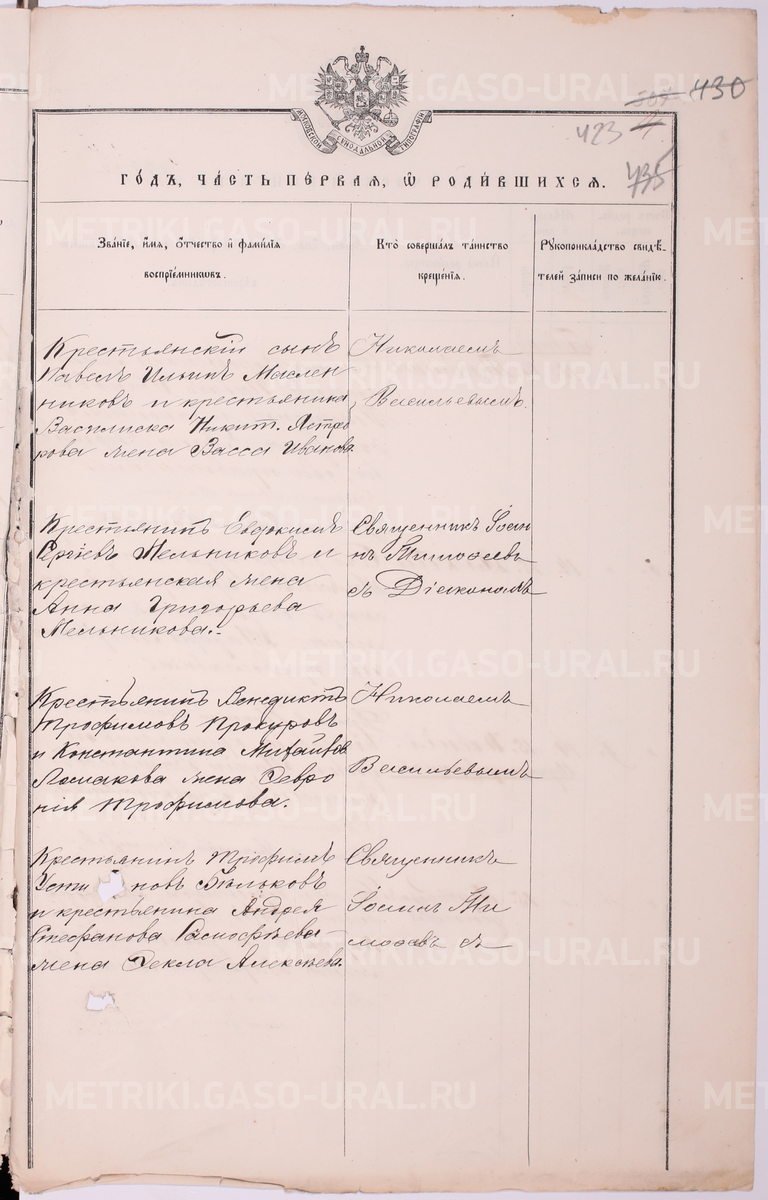 430
423
435
МОСКОВСКОЙ СѴНОДАЛЬНОЙ ТИПОГРАФІИ
ГО́ДЪ, ЧА́СТЬ ПЕ́РВАЯ, Ѿ РОДИ́ВШИХСЯ.
Зва́нїе, и҆́мя, ѻ҆́тчество и҆ фами́лїя
воспрїе́мникѡвъ.
Кто̀ соверша́лъ та́инство
креще́нїя.
Рꙋкоприкла́дство свидѣ́-
телей за́писи по жела́нїю.
Крестьянскій сынъ
Павелъ Ильинъ Маслен
никовъ и крестьянина
Василиска Никит. Ястре
рова жена Васса Иванова.
Николаемъ
Васильевымъ.
Крестьянинъ Евдокимъ
Сергѣевъ Мельниковъ и
крестьянская жена
Анна Григорьева
Мельникова.
Священникъ Іоан
нъ Тимоѳеевъ
съ Діакономъ
Крестьянинъ Венедиктъ
Трофимовъ Прокуровъ
и Константина Михайлов
Ломакова жена Февро
нія Трофимова.
Николаемъ
Васильевымъ
Крестьянинъ Трофимъ
Усти новъ Бѣльковъ
и крестьянина Андрея
Стефанова
жена Фекла Алексѣева.
Священникъ
Іоаннъ Ти
моѳеевъ съ
METRIKI.GASO-URAL.RU